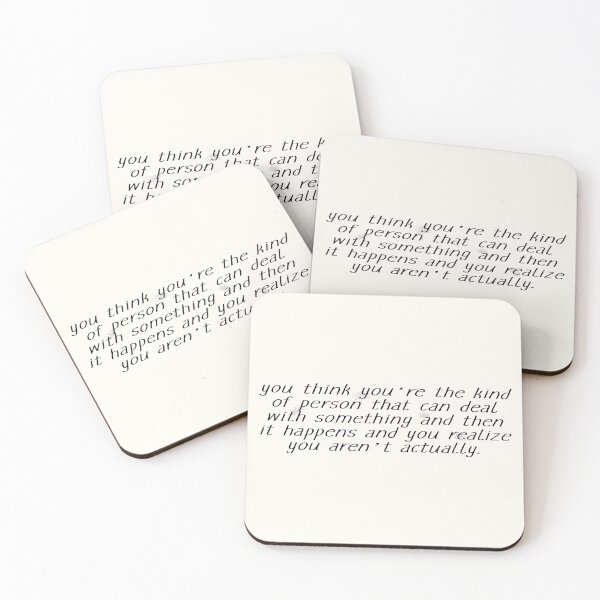 you think you're the
of person that can
with and
it you
you think you're the kind
of person that can deal
with something and then
it happens and you realize
you aren't actually.
you think you're the kind
of person that can deal
with something and then
it happens and you realize
you aren't
you think you're the kind
of person that can deal
with something and then
it happens and you realize
you aren't actually.